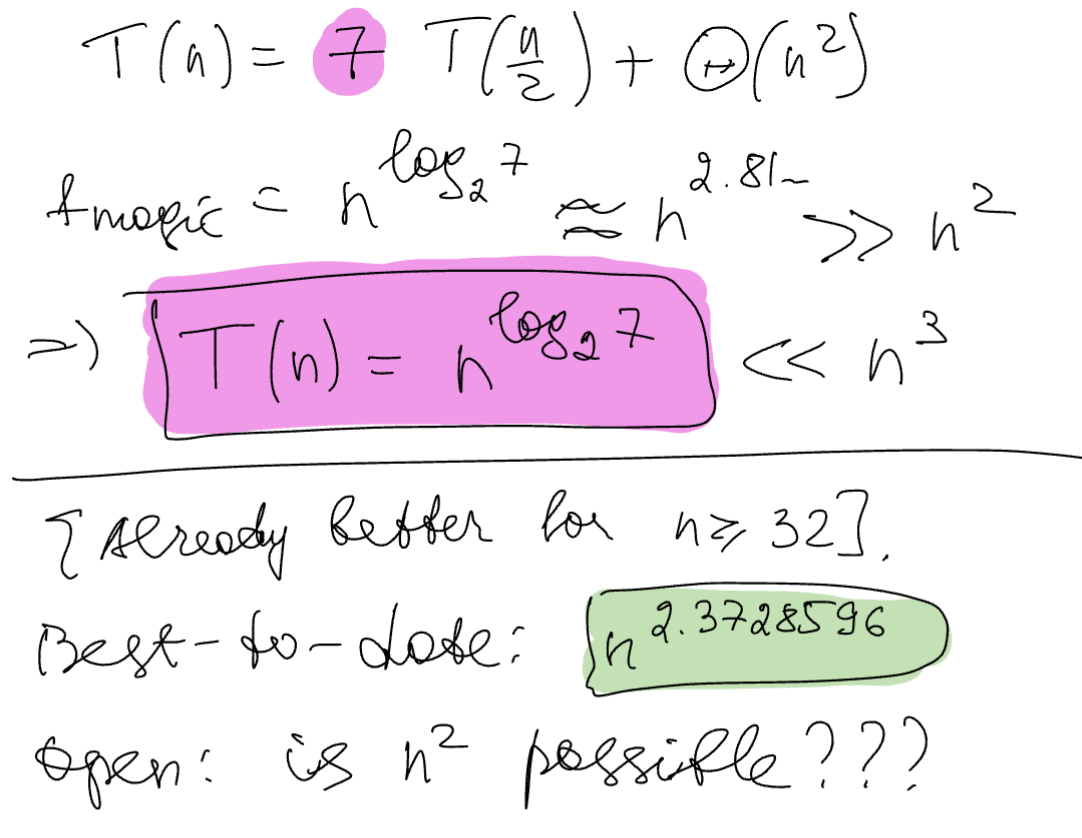 T(n) = 7 T(n/2) + Θ(n²)
fmagic = n^log₂7 ≈ n^2.81~ >> n²
=> T(n) = n^log₂7 << n³
[Already better for n ≥ 32].
Best-to-date: n^2.3728596
Open: is n² possible???